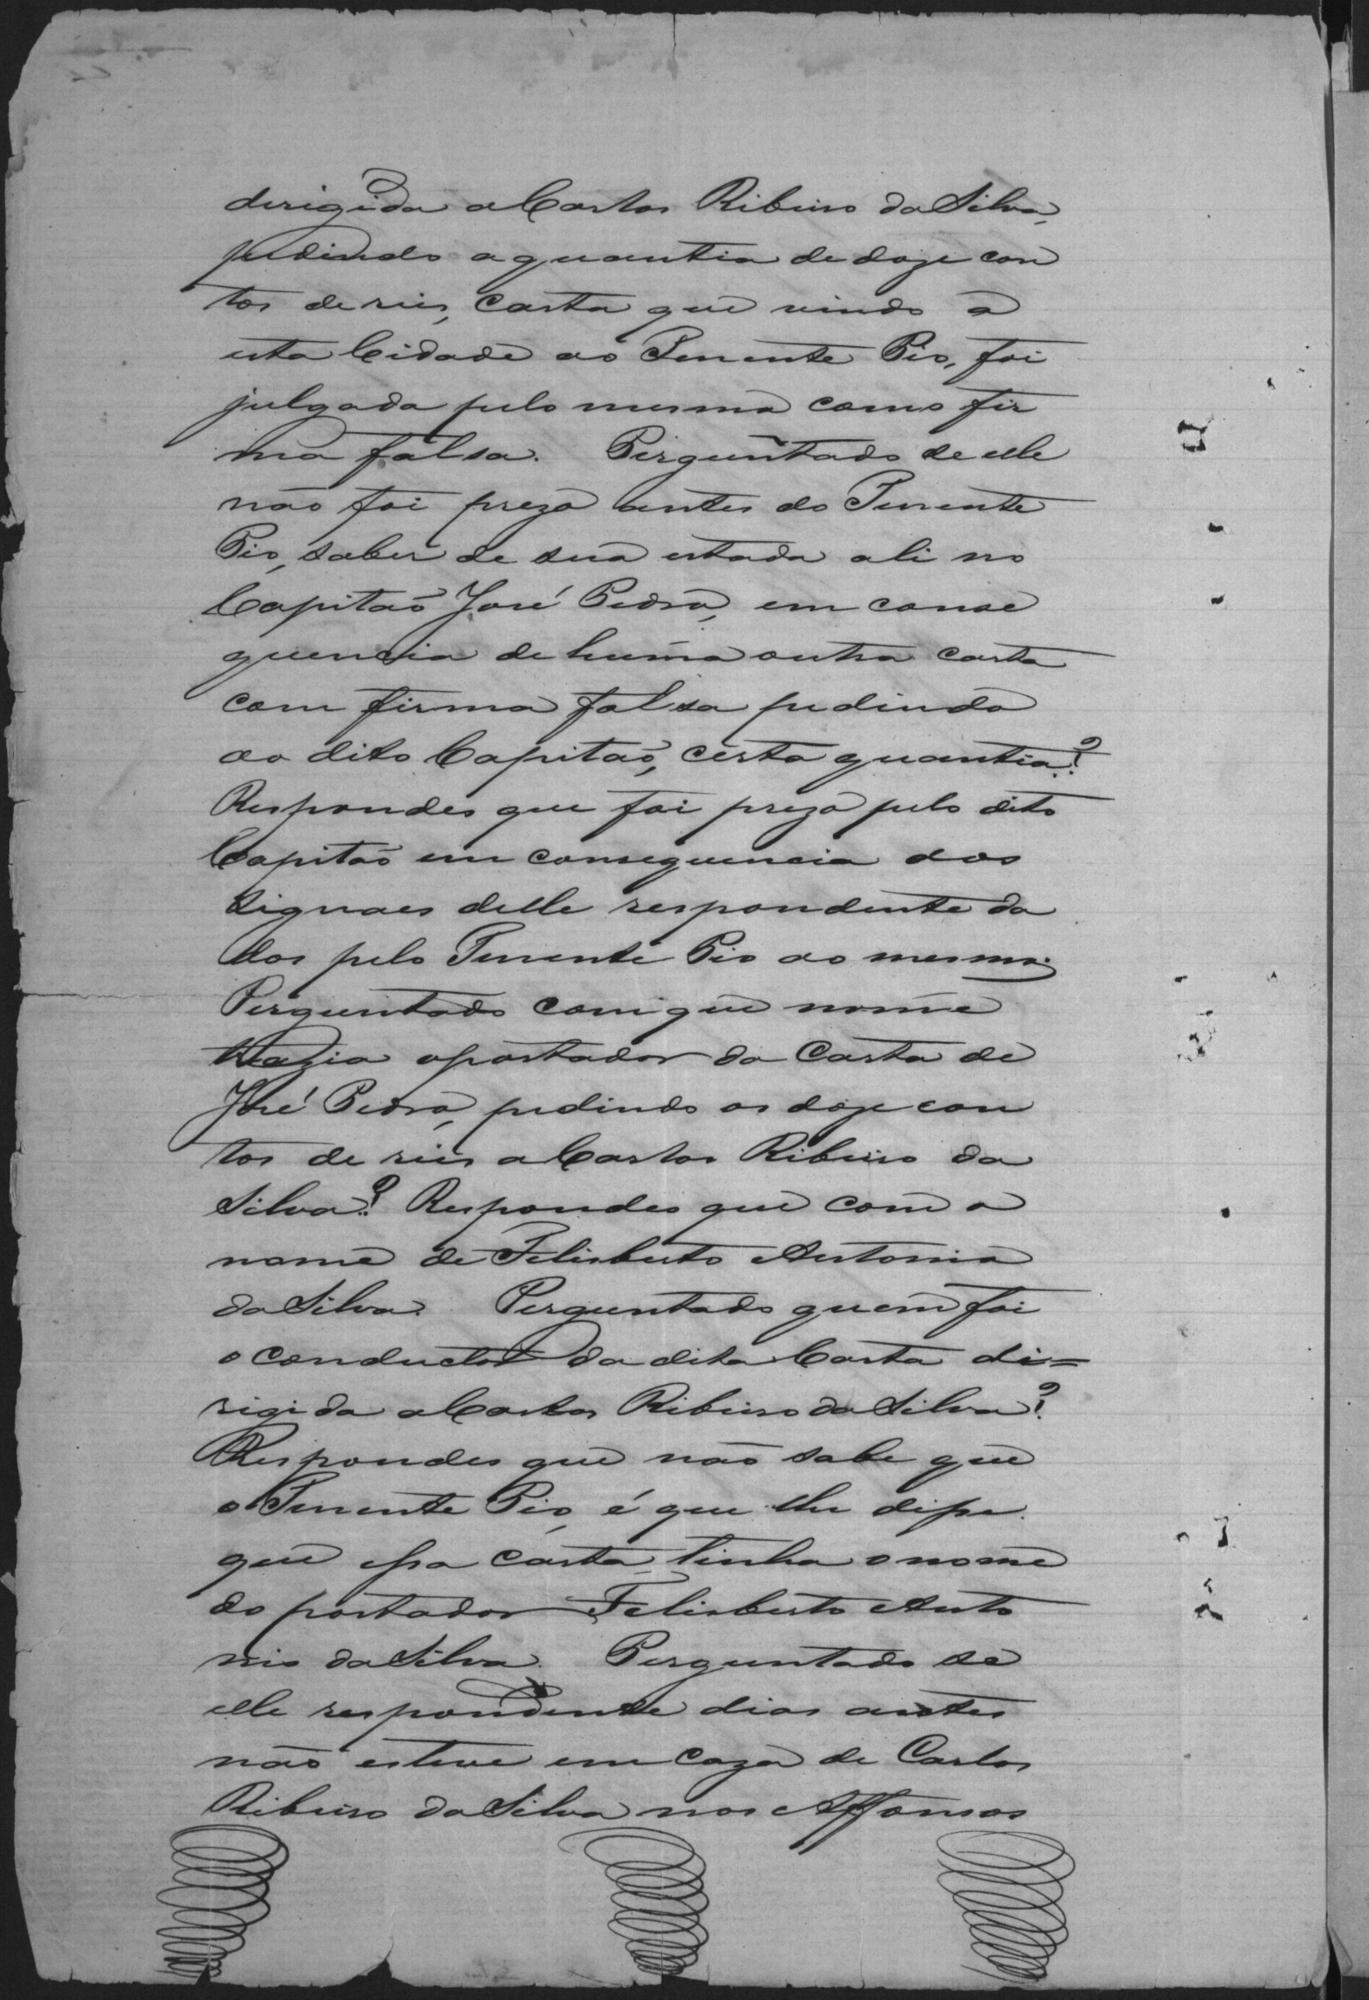 dirigida a Carlos Ribeiro da Silva,
pedindo a quantia de doze con
tos de reis, carta que vindo a
esta Cidade ao Tenente Pio, foi
julgada pelo mesmo como fir
ma falsa. Perguntado se elle
não foi prezo antes do Tenente
Pio, saber de sua estada ali no
Capitaõ José Pedro, em conse
quencia de huma outra carta
com firma falsa pedindo
ao dito Capitaõ, certa quantia?
Respondeo que foi prezo pelo dito
Capitaõ em consequencia dos
signaes delle respondente da
dos pelo Tenente Pio ao mesmo.
Perguntado com que nome
trazia o portador da Carta de
José Pedro, pedindo os doze con
tos de reis a Carlos Ribeiro da
Silva? Respondeo que com o
nome de Felisberto Antonio
da Silva. Perguntado quem foi
o conductor da dita Carta di=
rigida a Carlos Ribeiro da Silva?
Respondeo que não sabe que
o Tenente Pio, é que lhe disse
que essa carta tinha o nome
do portador Felisberto Anto
nio da Silva. Perguntado se
elle respondente dias antes
não esteve em caza de Carlos
Ribeiro da Silva nos Affonsos